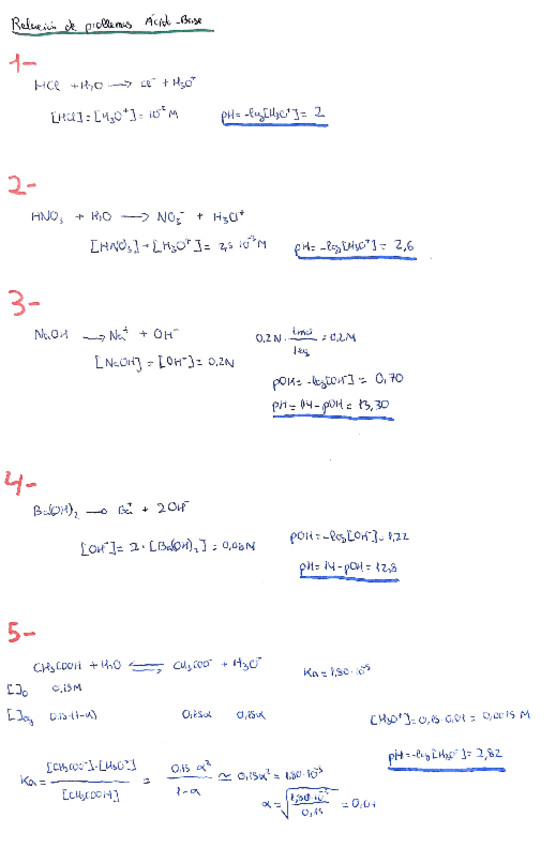 Relación de problemas Ácido-Base
1-
HCl + H2O → Cl⁻ + H3O⁺
[HCl] = [H3O⁺] = 10⁻² M pH = -log[H3O⁺] = 2
2-
HNO3 + H2O → NO3⁻ + H3O⁺
[HNO3] = [H3O⁺] = 2,5·10⁻³ M pH = -log[H3O⁺] = 2,6
3-
NaOH → Na⁺ + OH⁻ 0.2N · 1mol/1eq = 0.2M
[NaOH] = [OH⁻] = 0.2N
pOH = -log[OH⁻] = 0,70
pH = 14 - pOH = 13,30
4-
Ba(OH)2 → Ba⁺ + 2OH⁻
[OH⁻] = 2·[Ba(OH)2] = 0,06N pOH = -log[OH⁻] = 1,22
pH = 14 - pOH = 12,8
5-
CH3COOH + H2O ⇌ CH3COO⁻ + H3O⁺ Ka = 1,80·10⁻⁵
[ ]0 0,15M
[ ]eq 0.15·(1-α) 0,15α 0,15α [H3O⁺] = 0,15·0,01 = 0,0015 M
pH = -log[H3O⁺] = 2,82
Ka = [CH3COO⁻]·[H3O⁺]/[CH3COOH] = 0,15 α²/1-α ≃ 0,15α² = 1,80·10⁻⁵
α = √(1,80·10⁻⁵/0,15) = 0,01